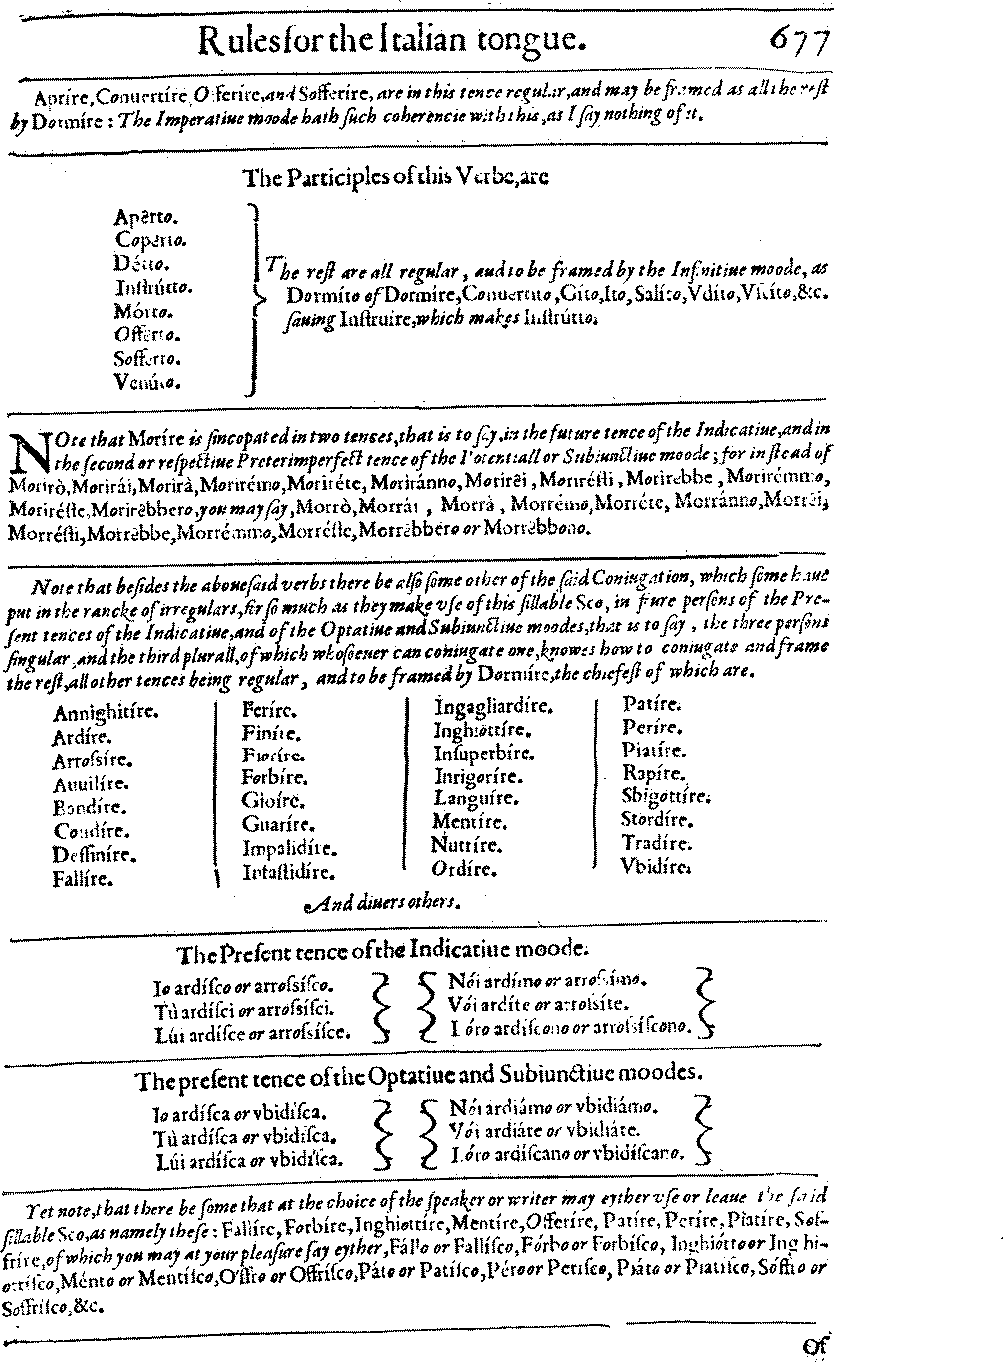 Rules for the Italian tongue. 677
Apríre, Conuertíre, Offeríre, and Sofferíre, are in this tence regular, and may be framed as all the rest
by Dormíre: The Imperatiue moode hath such coherencie with this, as I say nothing of it.
The Participles of this Verbe, are
Apêrto.
Copêrto.
Détto.
Instrútto.
Mórto.
Offêrto.
Soffêrto.
Venúto.
The rest are all regular, and to be framed by the Infinitiue moode, as
Dormíto of Dormíre, Conuertíto, Gíto, Ito, Salíto, Vdíto, Vscíto, &c.
sauing Instruíre, which makes Instrútto.
NOte that Moríre is sincopated in two tences, that is to say, in the future tence of the Indicatiue, and in
the second or respectiue Preterimperfect tence of the Potentiall or Subiunctiue moode; for in stead of
Morirò, Morirái, Morirà, Morirémo, Moriréte, Moriránno, Morirêi, Morirésti, Morirêbbe, Morirémmo,
Moriréste, Morirêbbero, you may say, Morrò, Morrái, Morrà, Morrémo, Morréte, Morránno, Morrêi,
Morrésti, Morrêbbe, Morrémmo, Morréste, Morrêbbero or Morrêbbono.
Note that besides the abouesaid verbs there be also some other of the said Coniugation, which some haue
put in the rancke of irregulars, for so much as they make vse of this sillable Sco, in fure persons of the Pre-
sent tences of the Indicatiue, and of the Optatiue and Subiunctiue moodes, that is to say, the three persons
singular, and the third plurall, of which whosoeuer can coniugate one, knowes how to coniugate and frame
the rest, all other tences being regular, and to be framed by Dormíre, the chiefest of which are.
Annighitíre. Feríre. Ingagliardíre. Patíre.
Ardíre. Finíre. Inghiottíre. Períre.
Arrossíre. Fioríre. Insuperbíre. Piatíre.
Auuilíre. Forbíre. Inrigoríre. Rapíre.
Bandíre. Gioíre. Languíre. Sbigottíre.
Condíre. Guaríre. Mentíre. Stordíre.
Deffiníre. Impalidíre. Nutríre. Tradíre.
Fallíre. Infastidíre. Ordíre. Vbidíre.
And diuers others.
The Present tence of the Indicatiue moode.
Io ardísco or arrossísco. Nói ardímo or arrossímo.
Tù ardísci or arrossísci. Vói ardíte or arrossíte.
Lúi ardísce or arrossísce. Lóro ardíscono or arrossíscono.
The present tence of the Optatiue and Subiunctiue moodes.
Io ardísca or vbidísca. Nói ardiámo or vbidiámo.
Tù ardísca or vbidísca. Vói ardiáte or vbidiáte.
Lúi ardísca or vbidísca. Lóro ardíscano or vbidíscano.
Yet note, that there be some that at the choice of the speaker or writer may eyther vse or leaue the said
sillable Sco, as namely these: Fallíre, Forbíre, Inghiottíre, Mentíre, Offeríre, Patíre, Períre, Piatíre, Sof-
fríre, of which you may at your pleasure say eyther, Fállo or Fallísco, Fórbo or Forbísco, Inghiótto or Inghi-
ottísco, Ménto or Mentísco, O'ffro or Offrísco, Páto or Patísco, Péro or Perísco, Piáto or Piatísco, Sóffro or
Soffrísco, &c.
Of